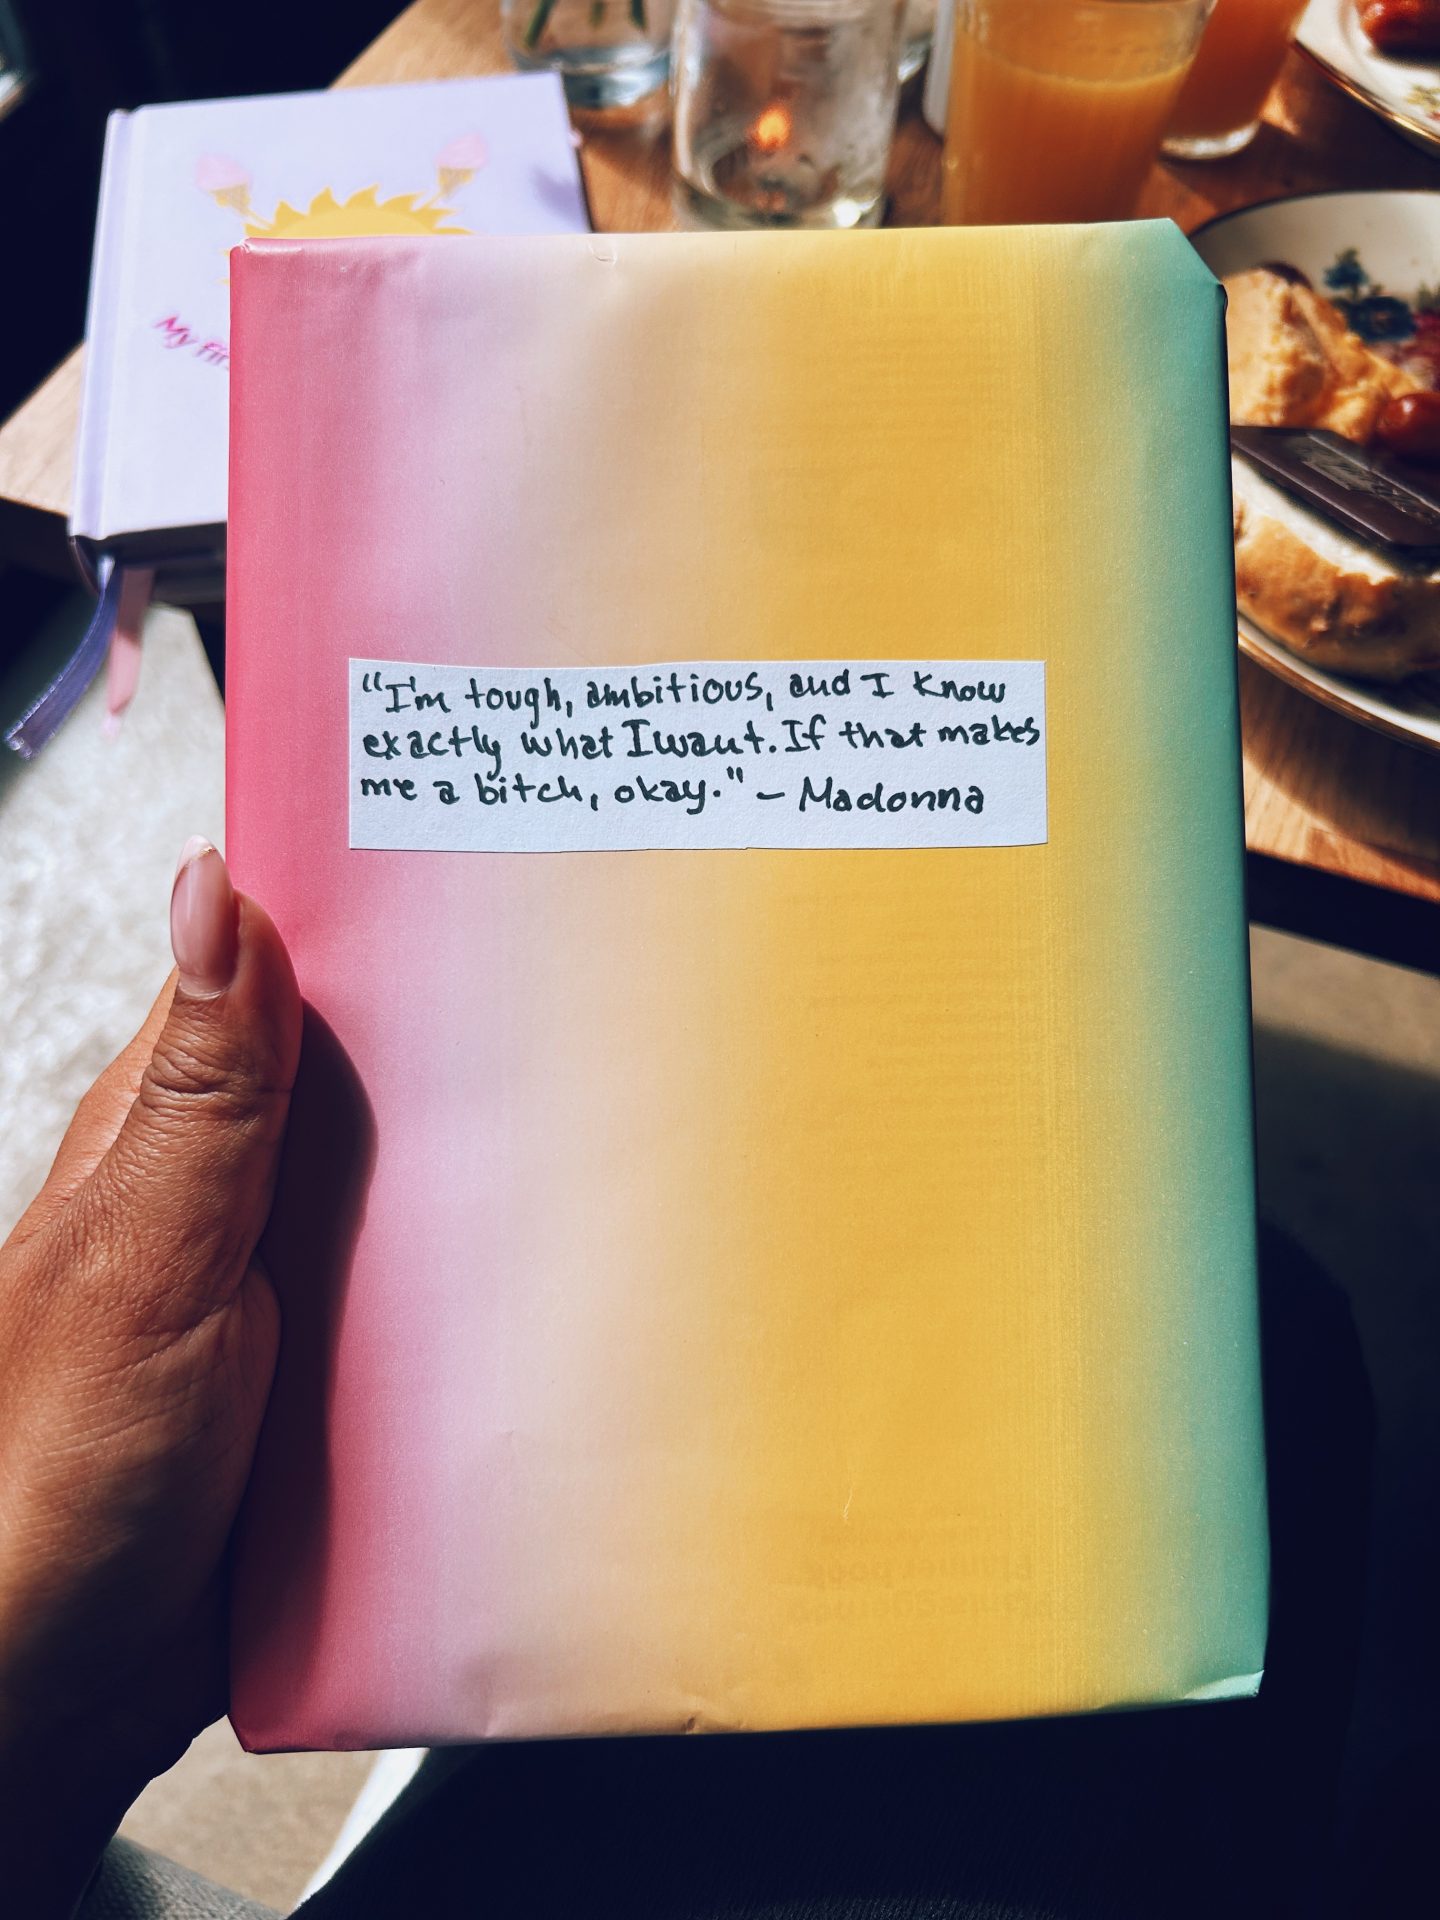 My
"I'm tough, ambitious, and I know
exactly what I want. If that makes
me a bitch, okay." – Madonna